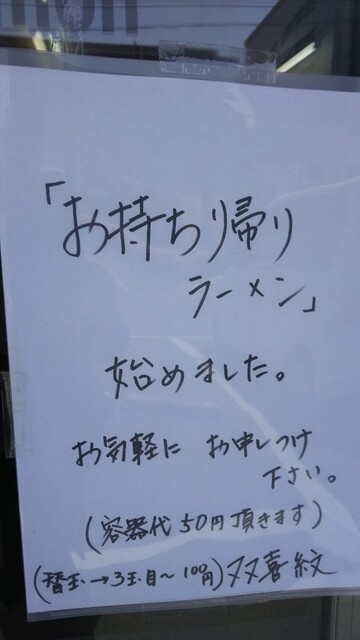 「お持ち帰り
ラーメン」
始めました。
お気軽に お申しつけ
下さい。
(容器代50円頂きます)
(替玉→3玉目～100円)双喜紋